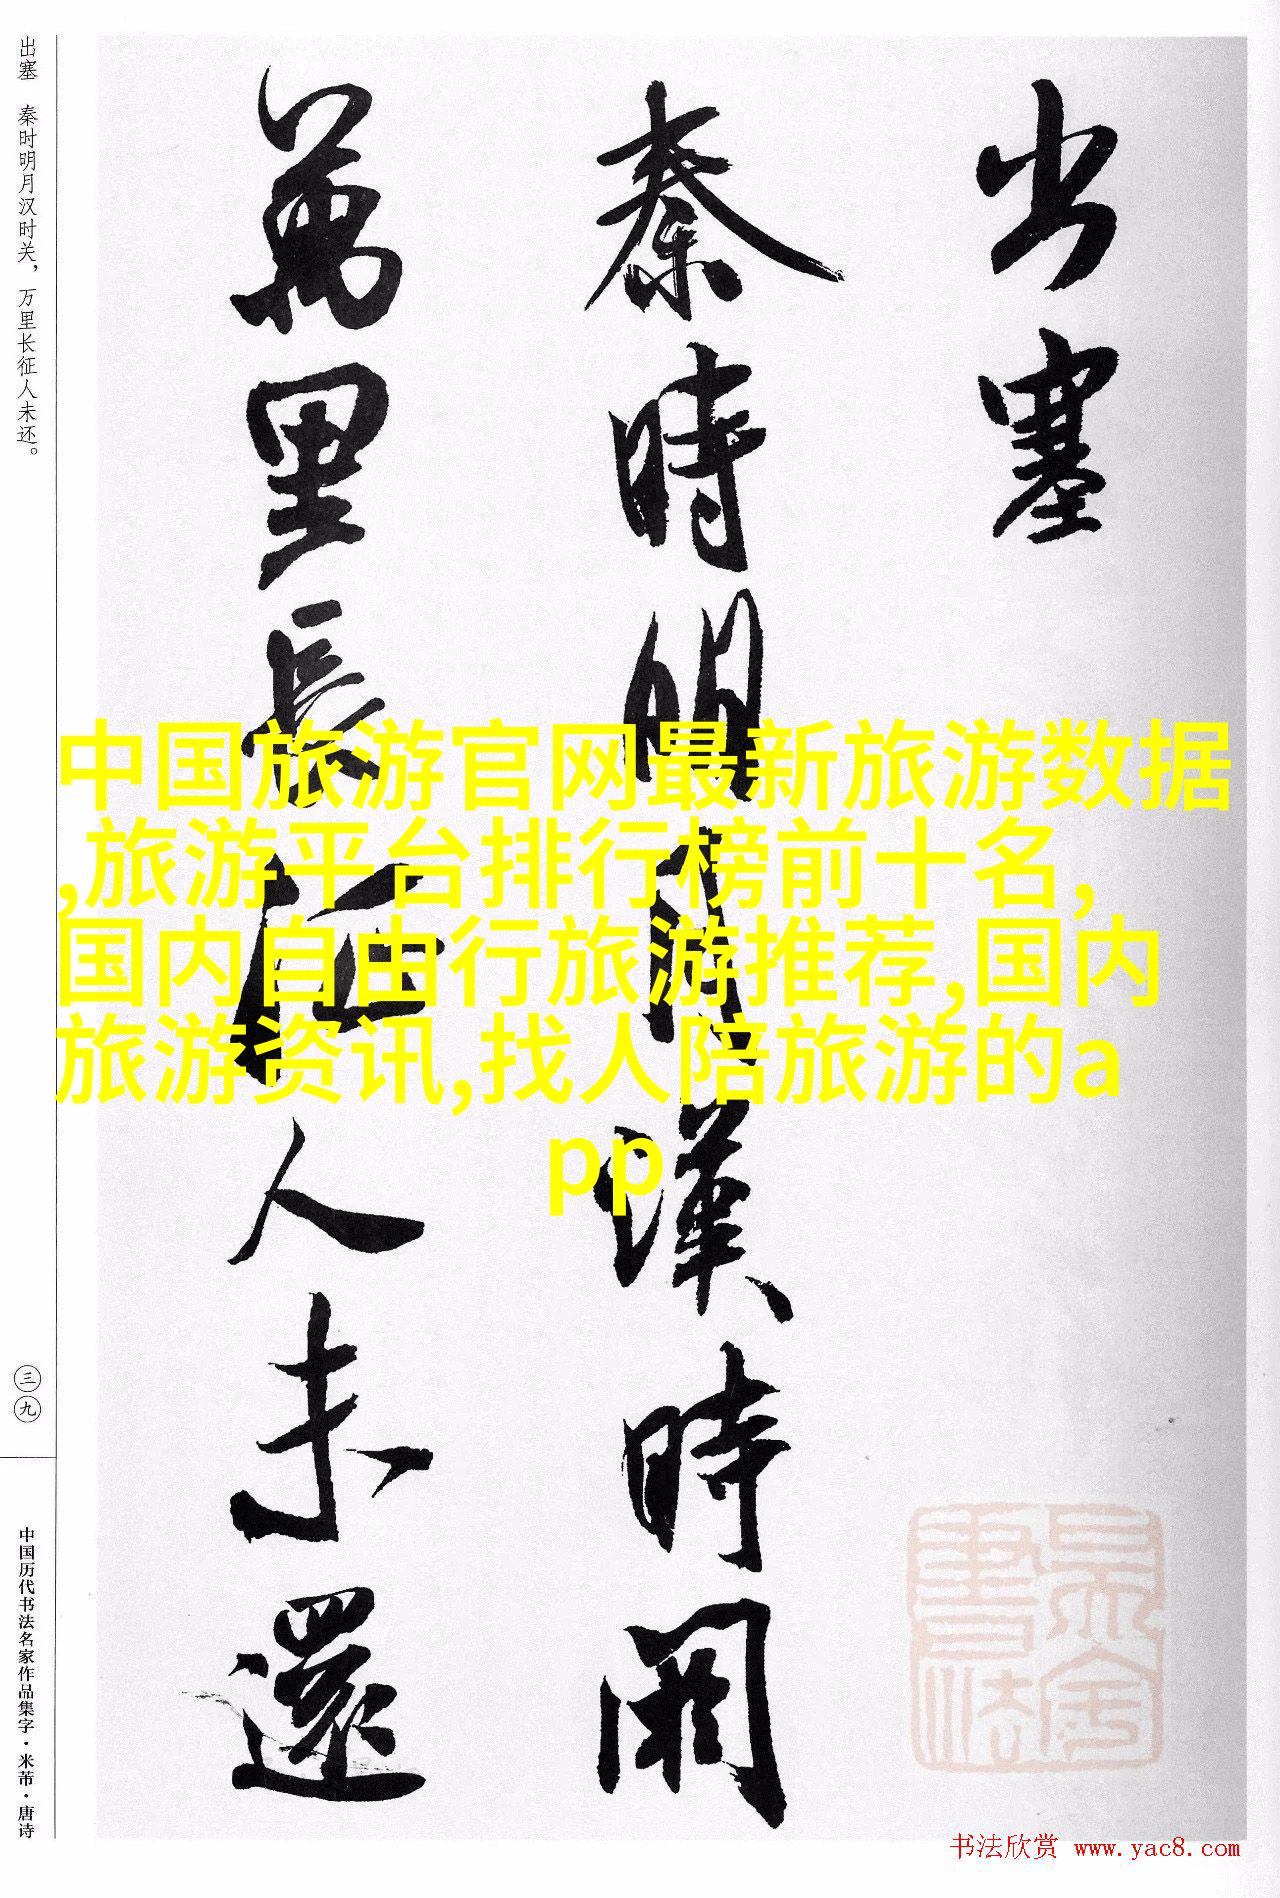 出塞
秦時明月漢時関
萬里長征人未還
出塞 秦时明月汉时关，万里长征人未还。
三九
中国历代书法名家作品集字·米芾·唐诗
中国旅游官网最新旅游数据
,旅游平台排行榜前十名,
国内自由行旅游推荐,国内
旅游资讯,找人陪旅游的a
pp
书法欣赏 www.yac8.com